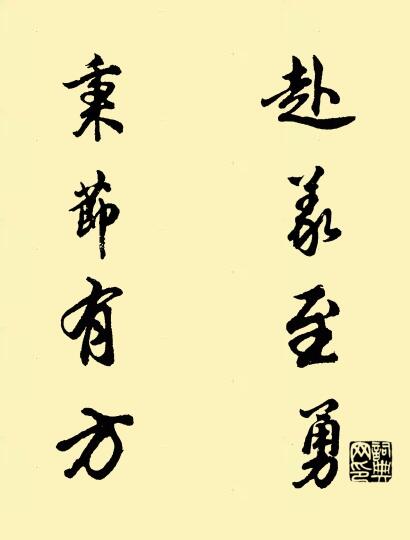 赴義至勇
秉節有方
詞典網印